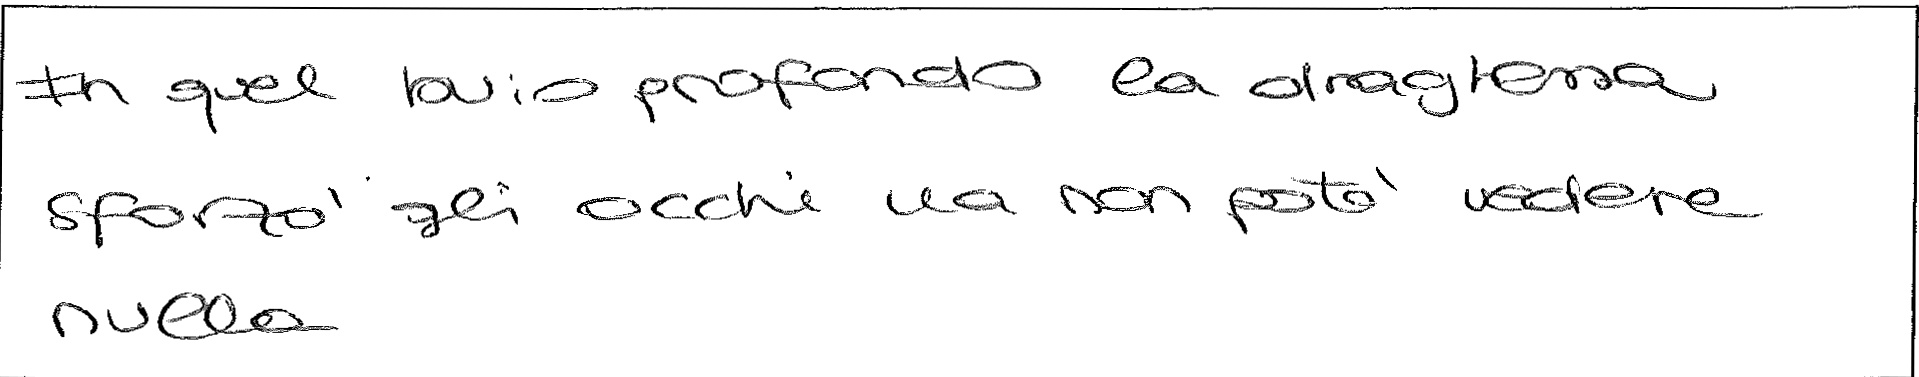 In quel buio profondo la draghessa
sforzò gli occhi ma non potò vedere
nulla